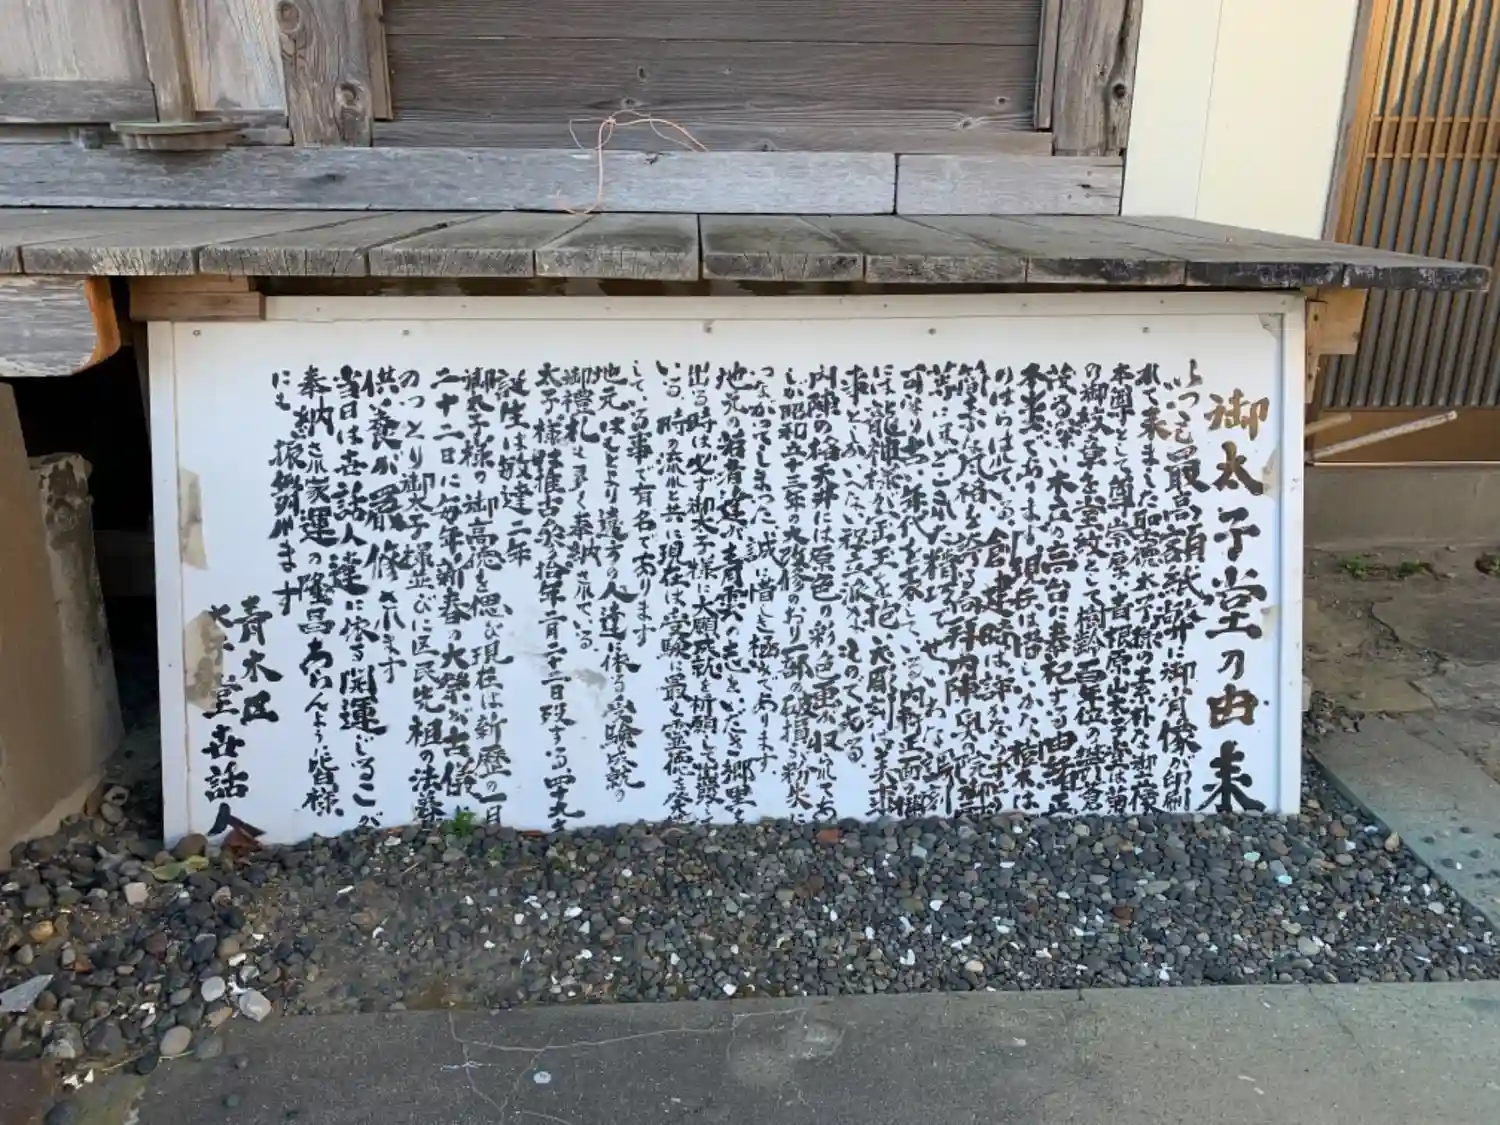 御太子堂の由来
いつも最高額紙幣に御肖像が印刷
されて来ました聖徳太子様の素朴な御立像
本尊として尊崇厚い青根原山太子堂は菊
の御紋章を堂紋として樹齢百年位の
茂る 木立の高台に奉祀する由緒正
本堂であります 現在は昔しかた 樹木は
のはらはれている 創建時は詳かならず
簡素な風格を誇る高拝内陣奥の
等にほどこされた精巧
可なり古い年代を表している 内行正面の欄
には龍神様が玉を抱い 彫刻は美
事としかいへない程立派なものである
内陣の格天井には原色の彩色画が収れてあ
しが昭和五十三年の大改修のおり一部の破損 粉失に
つながってしまった 誠に惜しき極みであります
地元の若者達が青雲の志をいだき郷里を
出る時は必ず御太子様に大願成就を祈願して出発
いる 時の流れと共に現在は受験に最も霊徳を発
している事で有名であります
地元はもとより遠方の人達に依る受験成就の
御禮札は多く奉納されている
太子様は推古 拾年二月二十二日歿する四十九才
誕生は敏達二年
御太子様の御高徳を偲び現在は新暦の一月
二十二日に毎年新春の大祭が古儀
のっとり御太子様並びに区民先祖の法要
供養が厳修されます
当日は世話人達に依る開運 るこが
奉納され家運の隆昌あらんように皆様
に 振舞れます
青木区
太子堂世話人